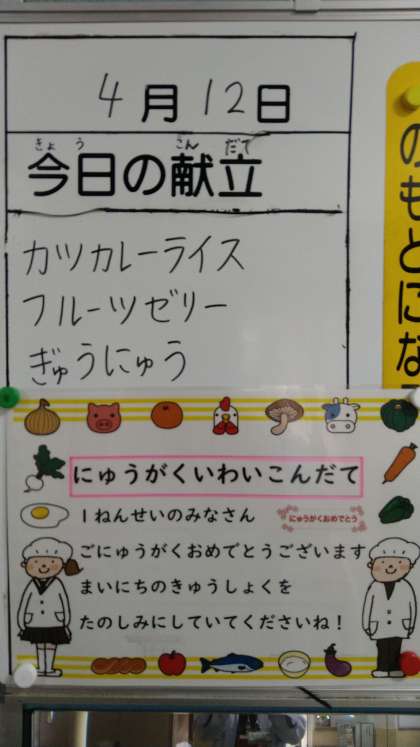 4月12日
きょう こんだて
今日の献立
カツカレーライス
フルーツゼリー
ぎゅうにゅう
のもとにな
にゅうがくいわいこんだて
1ねんせいのみなさん
にゅうがくおめでとう
ごにゅうがくおめでとうございます
まいにちのきゅうしょくを
たのしみにしていてくださいね！